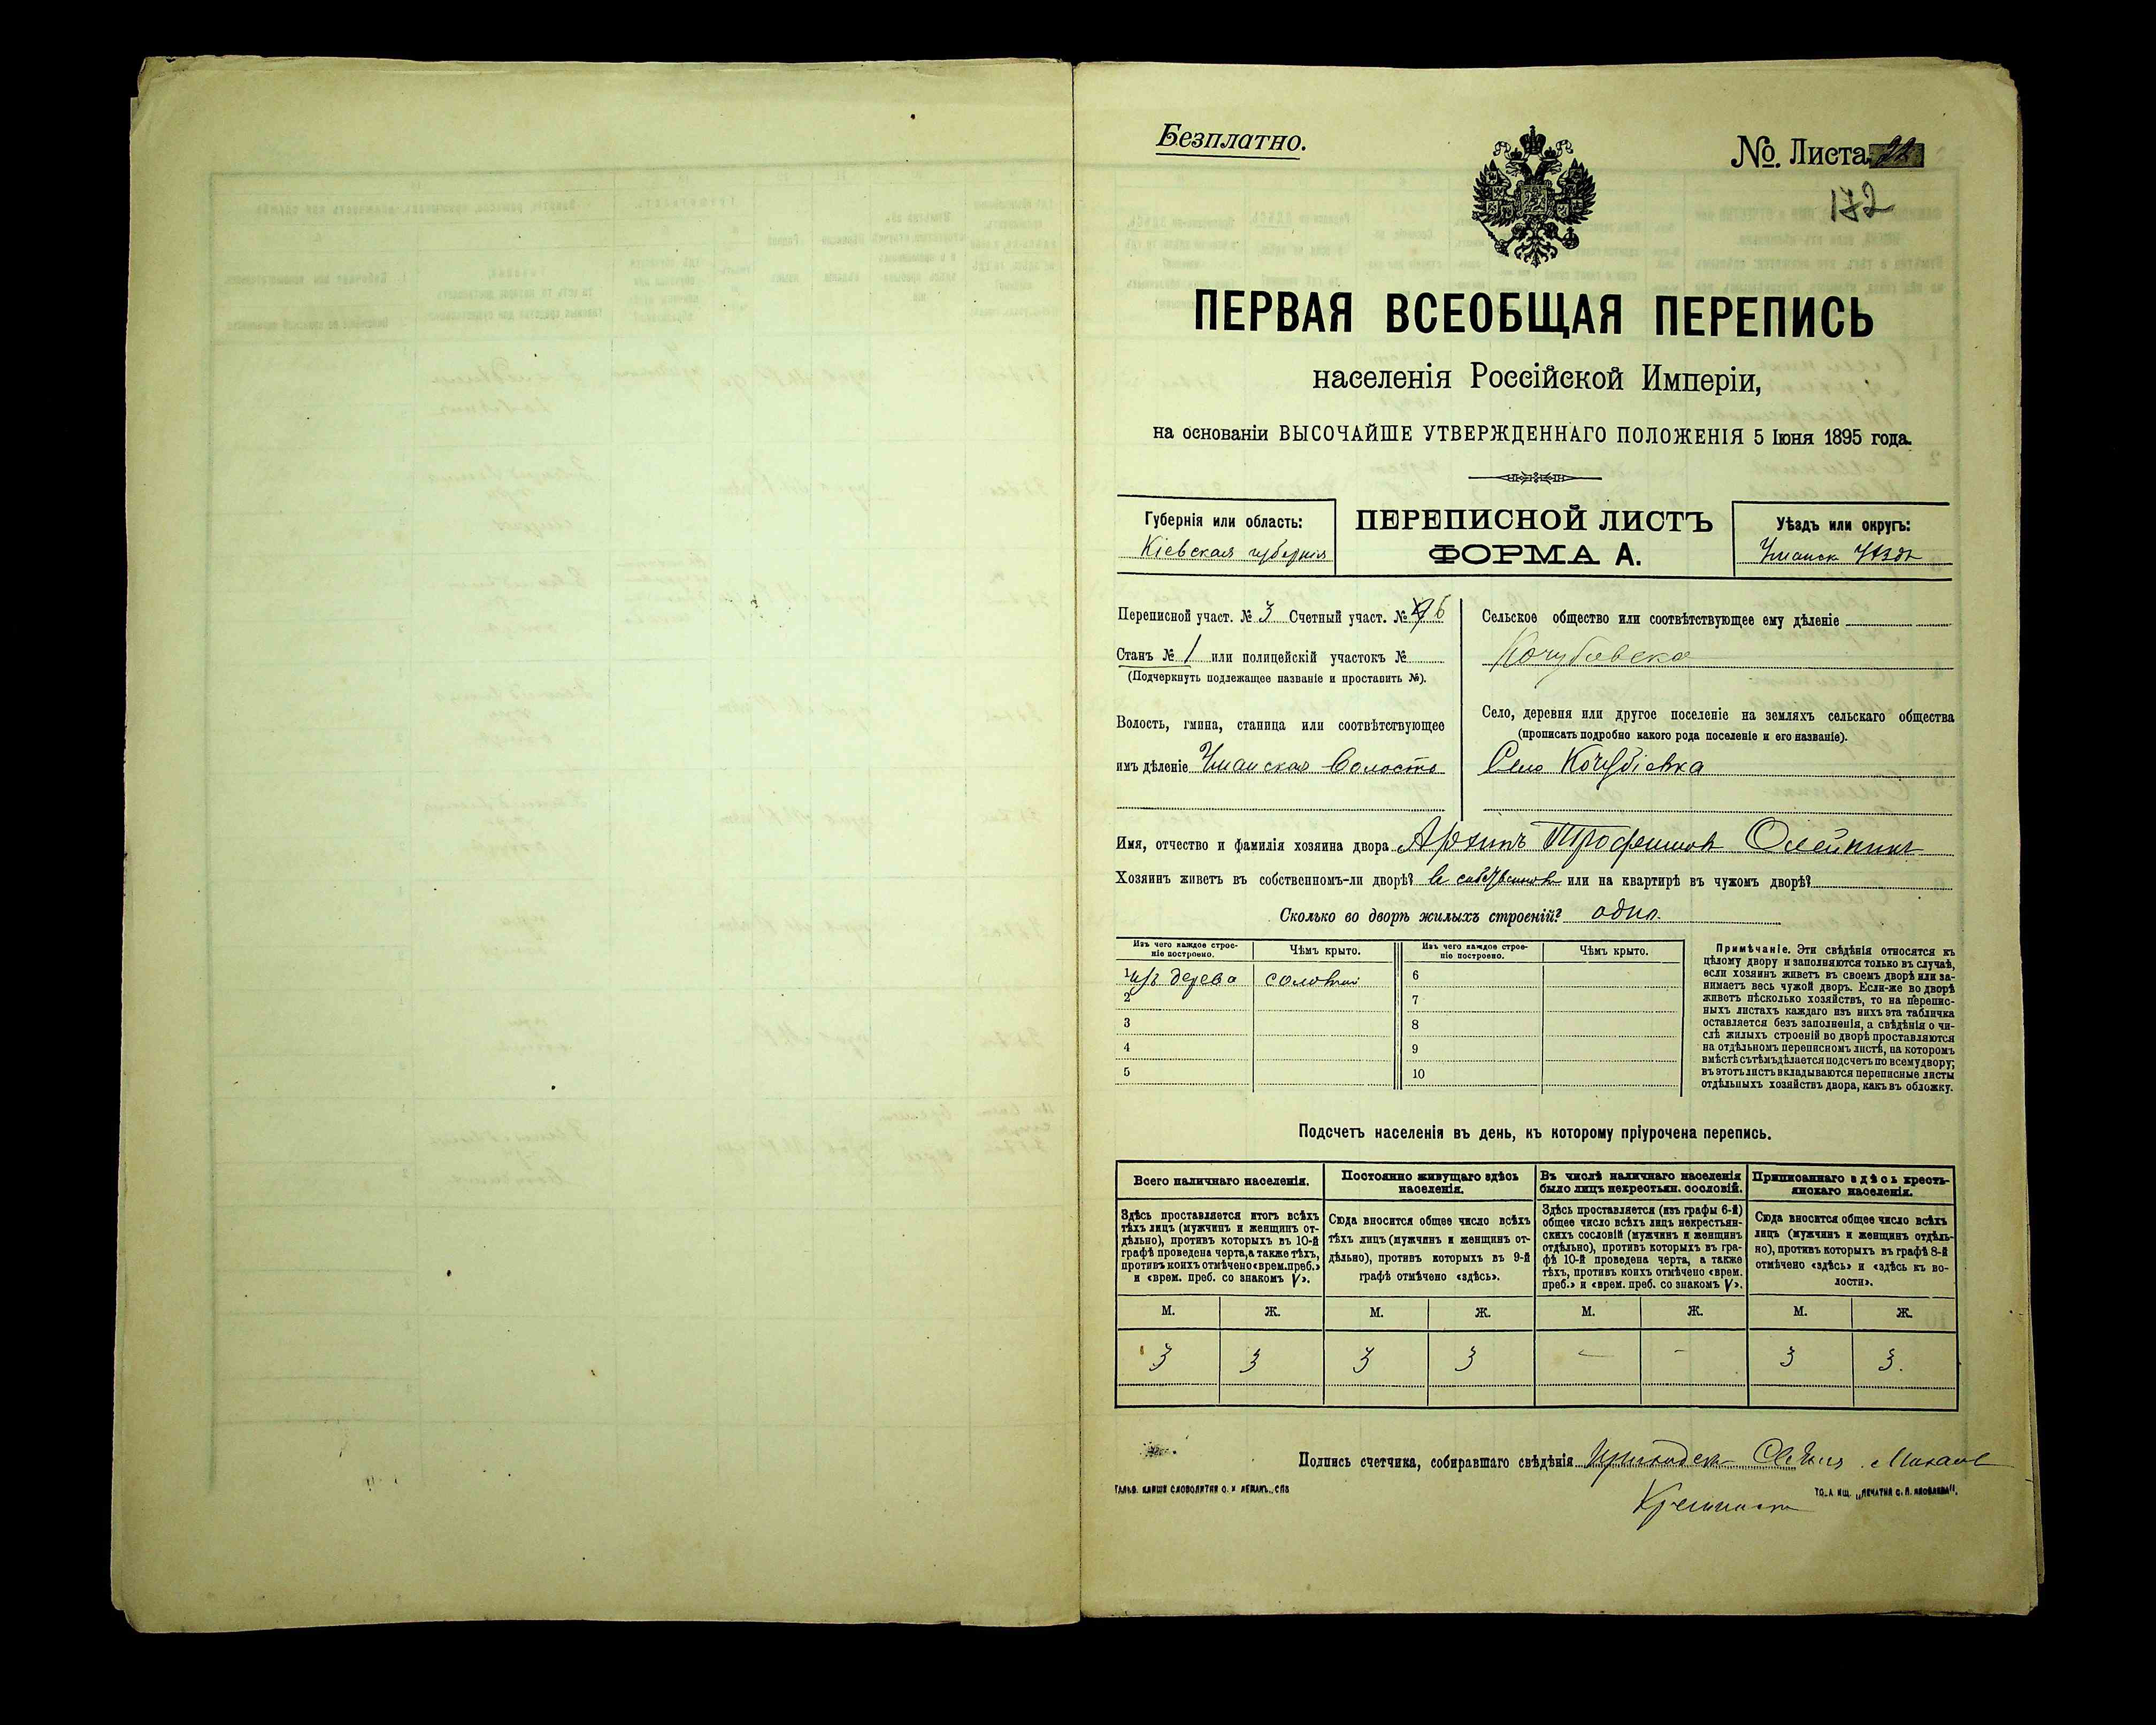 Безплатно.
№. Листа 22
172
ПЕРВАЯ ВСЕОБЩАЯ ПЕРЕПИСЬ
населенія Россійской Имперіи,
на основаніи ВЫСОЧАЙШЕ УТВЕРЖДЕННАГО ПОЛОЖЕНІЯ 5 Іюня 1895 года.
Губернія или область:
Кіевская губернія
ПЕРЕПИСНОЙ ЛИСТЪ
ФОРМА А.
Уѣздъ или округъ:
Уманск Уѣздъ
Переписной участ. № 3 Счетный участ. № 6
Станъ № 1 или полицейскій участокъ №
(Подчеркнуть подлежащее названіе и проставить №).
Волость, гмина, станица или соотвѣтствующее
имъ дѣленіе Уманская Волость
Сельское общество или соотвѣтствующее ему дѣленіе
Село, деревня или другое поселеніе на земляхъ сельскаго общества
(прописать подробно какого рода поселеніе и его названіе).
Село Кочубіевка
Имя, отчество и фамилія хозяина двора Архипъ Трофимов Олейникъ
Хозяинъ живетъ въ собственномъ-ли дворѣ? в собственом или на квартирѣ въ чужомъ дворѣ?
Сколько во дворѣ жилыхъ строеній? одно
Изъ чего каждое строе-
ніе построено.
Чѣмъ крыто.
Изъ чего каждое строе-
ніе построено.
Чѣмъ крыто.
1 изъ дерева соломой
2
3
4
5
6
7
8
9
10
Примѣчаніе. Эти свѣдѣнія относятся къ
цѣлому двору и заполняются только въ случаѣ,
если хозяинъ живетъ въ своемъ дворѣ или за-
нимаетъ весь чужой дворъ. Если-же во дворѣ
живетъ нѣсколько хозяйствъ, то на перепис-
ныхъ листахъ каждаго изъ нихъ эта табличка
оставляется безъ заполненія, а свѣдѣнія о чи-
слѣ жилыхъ строеній во дворѣ проставляются
на отдѣльномъ переписномъ листѣ, на которомъ
вмѣстѣ съ тѣмъ дѣлается подсчетъ по всему двору;
въ этотъ листъ вкладываются переписные листы
отдѣльныхъ хозяйствъ двора, какъ въ обложку.
Подсчетъ населенія въ день, къ которому пріурочена перепись.
Всего наличнаго населенія.
Здѣсь проставляется итогъ всѣхъ
тѣхъ лицъ (мужчинъ и женщинъ от-
дѣльно), противъ которыхъ въ 10-й
графѣ проведена черта, а также тѣхъ,
противъ коихъ отмѣчено «врем. преб.»
и «врем. преб. со знакомъ V».
Постоянно живущаго здѣсь
населенія.
Сюда вносится общее число всѣхъ
тѣхъ лицъ (мужчинъ и женщинъ от-
дѣльно), противъ которыхъ въ 9-й
графѣ отмѣчено «здѣсь».
Въ числѣ наличнаго населенія
было лицъ некрестьян. сословій.
Здѣсь проставляется (изъ графы 6-й)
общее число всѣхъ лицъ некрестьян-
скихъ сословій (мужчинъ и женщинъ
отдѣльно), противъ которыхъ въ гра-
фѣ 10-й проведена черта, а также
тѣхъ, противъ коихъ отмѣчено «врем.
преб.» и «врем. преб. со знакомъ V».
Приписаннаго здѣсь кресть-
янскаго населенія.
Сюда вносится общее число всѣхъ
лицъ (мужчинъ и женщинъ отдѣль-
но), противъ которыхъ въ графѣ 8-й
отмѣчено «здѣсь» и «здѣсь къ во-
лости».
М. Ж. М. Ж. М. Ж. М. Ж.
3 3 3 3 — - 3 3.
Подпись счетчика, собиравшаго свѣдѣнія